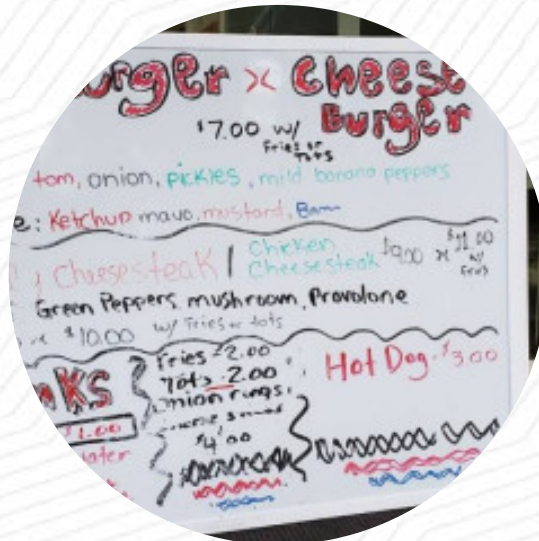 urger x Cheese
Burger
$7.00 w/
Fries or
tots
tom, onion, pickles, mild banana peppers
e: Ketchup mayo, mustard,
Cheesesteak / Chicken
Cheesesteak $9.00 x $11.00
w/
Fries
Green Peppers, mushroom, Provolone
$10.00 w/ Fries or tots
Fries 2.00
Tots 2.00
onion rings,
$4.00
Hot Dog $3.00
NKS
$1.00
ater